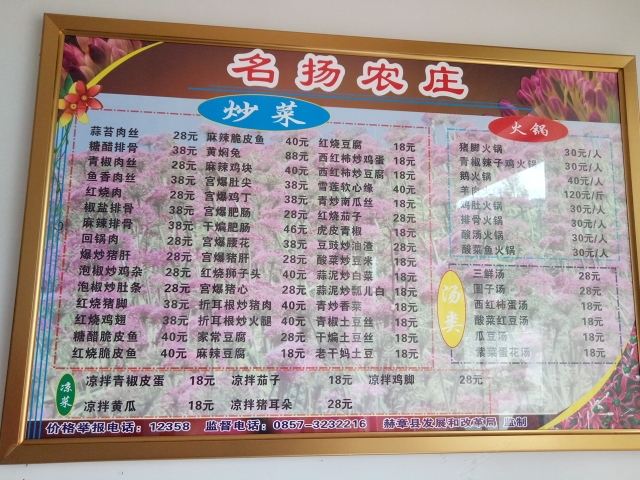 名扬农庄
炒菜
蒜苔肉丝 28元
糖醋排骨 38元
青椒肉丝 28元
鱼香肉丝 28元
红烧肉 38元
椒盐排骨 38元
麻辣排骨 38元
回锅肉 28元
爆炒猪肝 28元
泡椒炒鸡杂 28元
泡椒炒肚条 28元
红烧猪脚 38元
红烧鸡翅 38元
糖醋脆皮鱼 40元
红烧脆皮鱼 40元
麻辣脆皮鱼 40元
黄焖兔 88元
麻辣鸡块 40元
宫爆肚尖 38元
宫爆鸡丁 28元
宫爆肥肠 40元
干煸肥肠 46元
宫爆腰花 38元
宫爆猪肝 28元
红烧狮子头 40元
宫爆猪心 28元
折耳根炒猪肉 40元
折耳根炒火腿 40元
家常豆腐 28元
麻辣豆腐 18元
红烧豆腐 18元
西红柿炒鸡蛋 18元
西红柿炒豆腐 18元
雪莲软心缘 40元
青炒南瓜丝 18元
红烧茄子 28元
虎皮青椒 18元
豆豉炒油渣 28元
酸菜炒豆米 18元
蒜泥炒白菜 18元
蒜泥炒瓢儿白 18元
青炒香菜 18元
青椒土豆丝 18元
干煸土豆丝 18元
老干妈土豆 18元
火锅
猪脚火锅 30元/人
青椒辣子鸡火锅 30元/人
鹅火锅 40元/人
羊肉 120元/斤
肚火锅 30元/人
排骨火锅 30元/人
酸汤火锅 30元/人
酸菜鱼火锅 30元/人
汤类
三鲜汤 28元
圆子汤 28元
西红柿蛋汤 18元
酸菜红豆汤 18元
瓜豆汤 18元
菜蛋花汤 18元
凉菜
凉拌青椒皮蛋 18元 凉拌茄子 18元 凉拌鸡脚 28元
凉拌黄瓜 18元 凉拌猪耳朵 28元
价格举报电话：12358 监督电话：0857-3232216 赫章县发展和改革局 监制